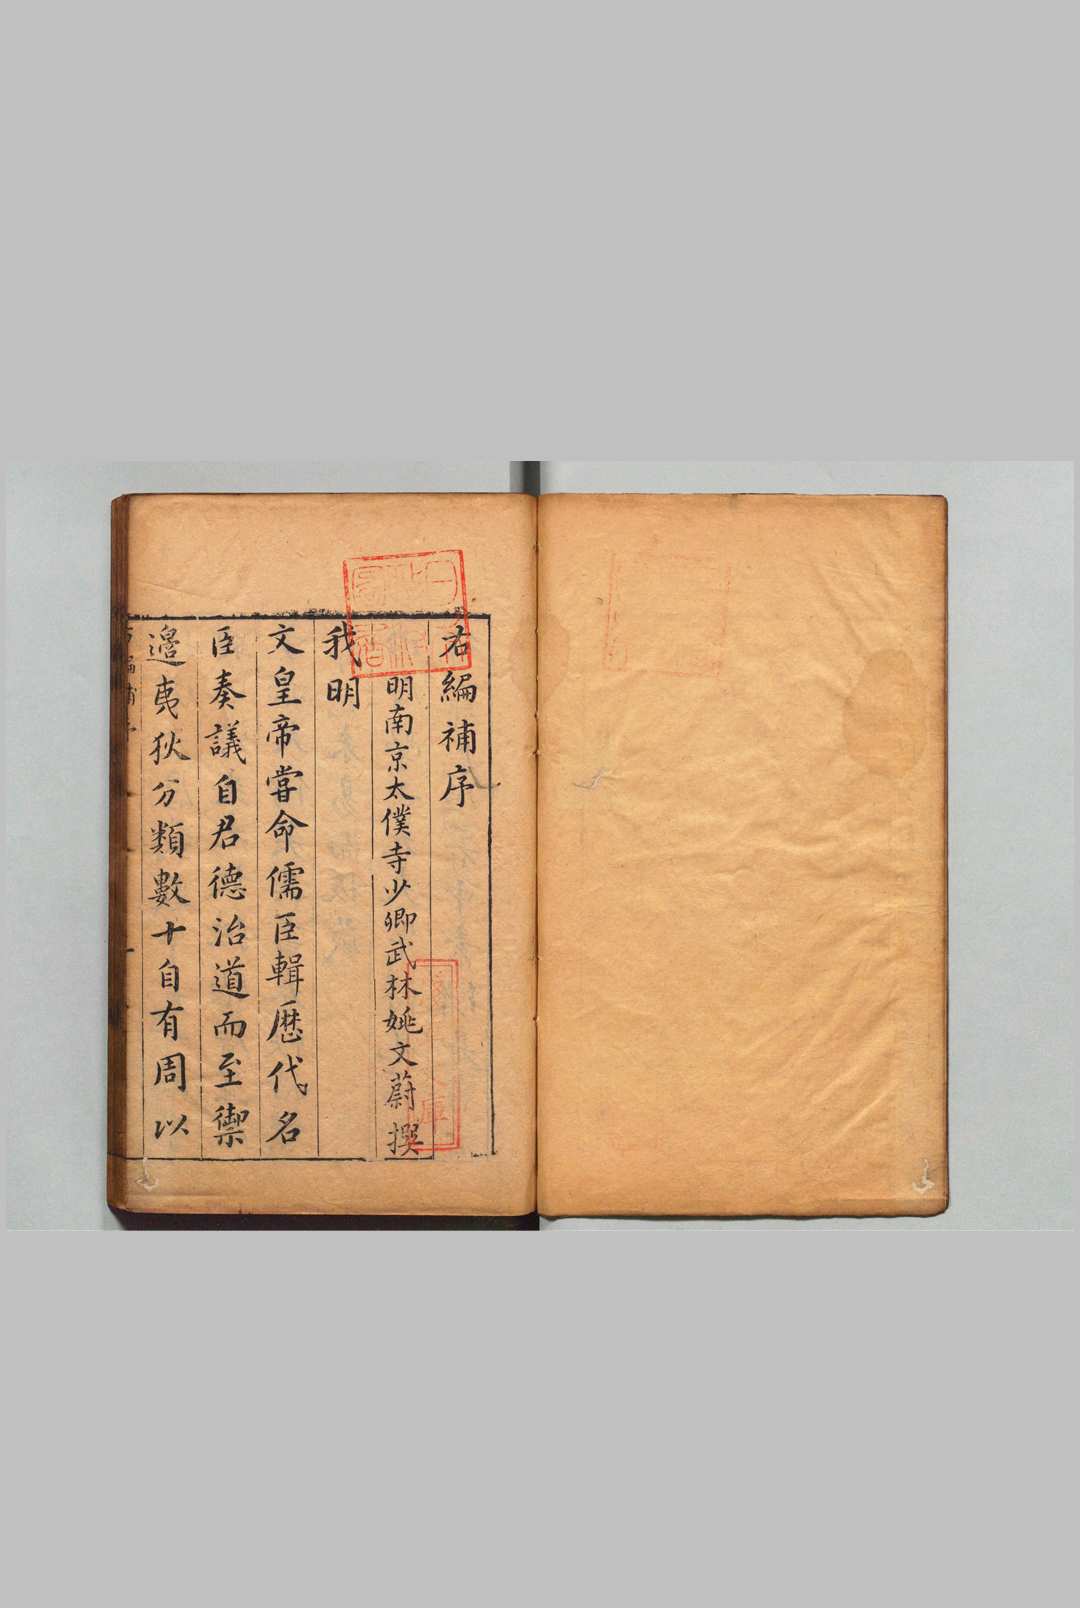 右編補序
明南京太僕寺少卿武林姚文蔚撰
我明
文皇帝嘗命儒臣輯歷代名
臣奏議自君德治道而至禦
邊夷狄分類數十自有周以